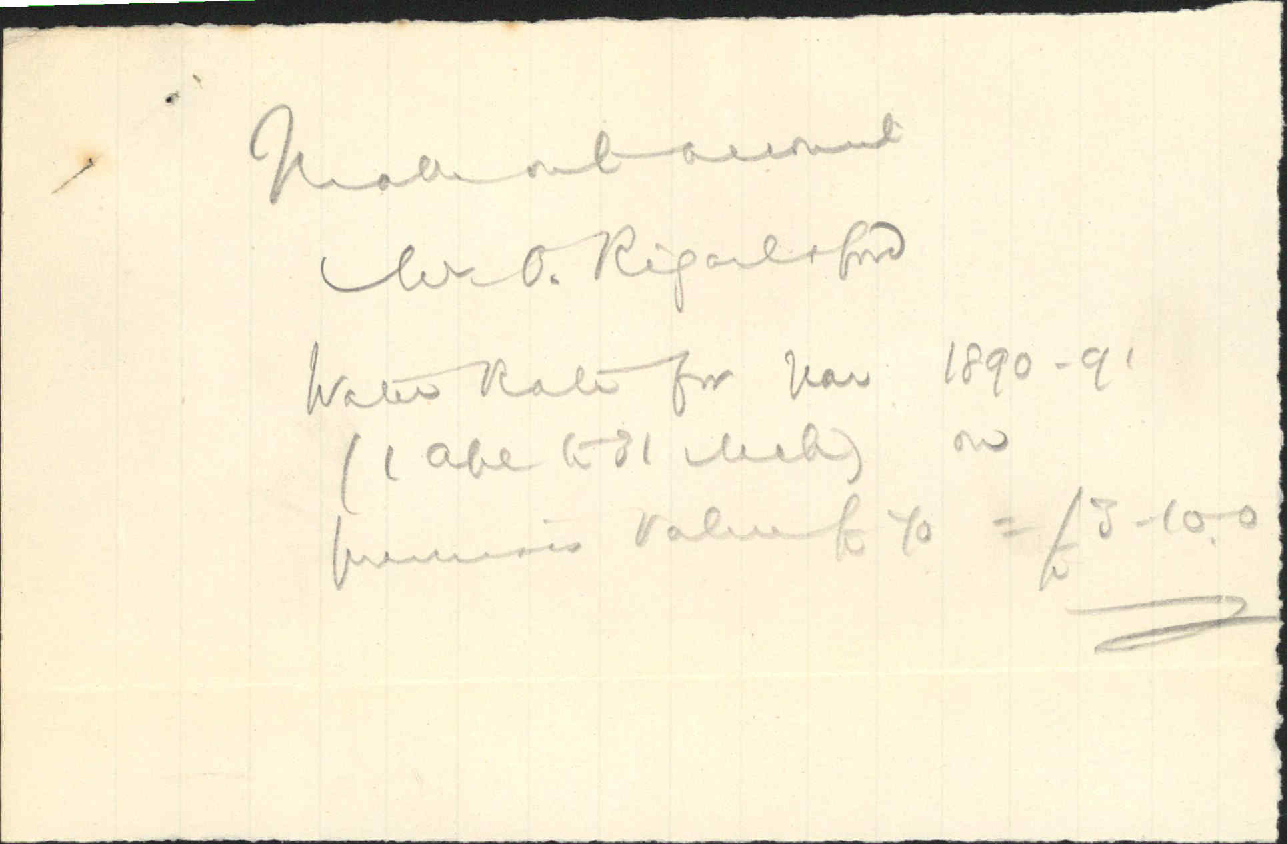 Make out account
Mr O.
Water Rate for year 1890-91
(1 Apl to 31 Mch) on
premises value £70 = £3-10.0